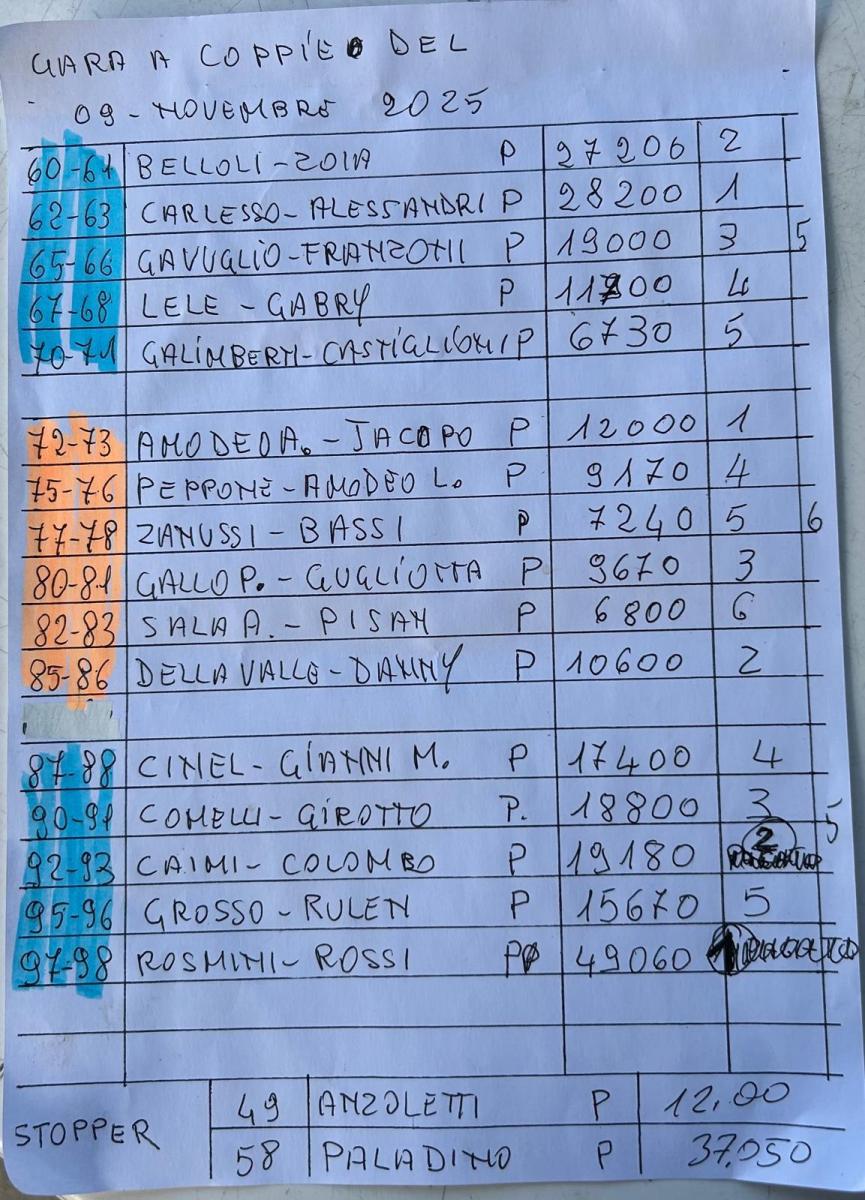 GARA A COPPIE DEL
09 - NOVEMBRE 2025
60-61 BELLOLI - ZOIA P 27206 2
62-63 CARLESSO - ALESSANDRI P 28200 1
65-66 GAVUGLIO - FRANZONI P 19000 3 5
67-68 LELE - GABRY P 4
70-71 GALIMBERTI - CASTIGLIONI P 6730 5
72-73 AMODEO A. - JACOPO P 12000 1
75-76 PEPPONE - AMODEO L. P 9170 4
77-78 ZANUSSI - BASSI P 7240 5 6
80-81 GALLO P. - GUGLIOTTA P 9670 3
82-83 SALA A. - PISANI P 6800 6
85-86 DELLA VALLE - DANNY P 10600 2
87-88 CINEL - GIANNI M. P 17400 4
90-91 COMELLI - GIROTTO P. 18800 3 5
92-93 CAIMI - COLOMBO P 19180 2
95-96 GROSSO - RULEN P 15670 5
97-98 ROSMINI - ROSSI P 49060 1
STOPPER
49 ANZOLETTI P 12.00
58 PALADINO P 37.050